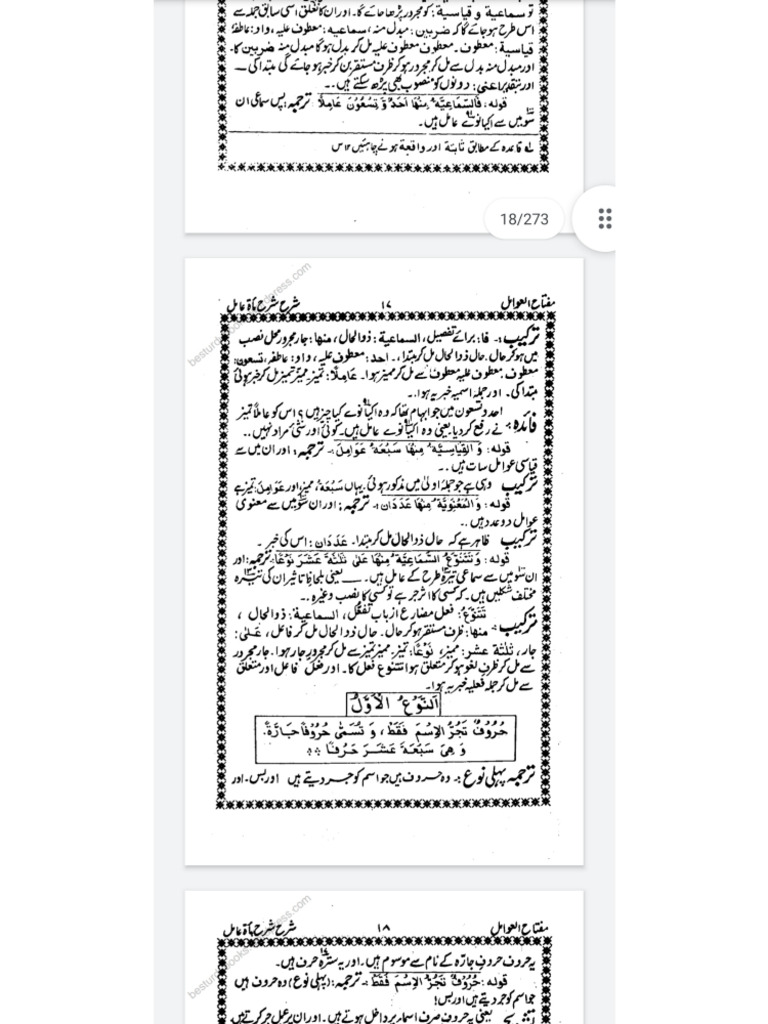 تو سماعیة و قیاسیة: کو مجرور پڑھا جائے گا۔ اور ان کا تعلق اسی سابق جملہ سے
اس طرح ہو جائے گا کہ ضربین: مبدل منہ، سماعیه: معطوف علیہ، واو: عاطفہ
قیاسیة: معطوف۔ معطوف معطوف علیہ مل کر بدل ہوگا مبدل منہ ضربین کا۔
اور مبدل منہ بدل سے مل کر مجرور ہو کر ظرف مستقر بن کر خبر ہو جائے گی مبتدا کی
اور بتقدیر اعنی: دونوں کو منصوب بھی پڑھ سکتے ہیں۔
قوله: فَالسَّمَاعِيَّة مِنْهَا اَحَدٌ وَّ تِسْعُوْنَ عَامِلًا ترجمہ: پس سماعی ان
سو میں سے اکیانوے عامل ہیں۔
لہ قاعدہ کے مطابق ثابتة اور واقعة ہونے چاہئیں ۱۲ س
18/273
مفتاح العوامل ۱۷ شرح شرح مأة عامل
ترکیب:۔ فا: برائے تفصیل، السماعیة: ذوالحال، منها: جار مجرور محل نصب
میں ہو کر حال۔ حال ذوالحال مل کر مبتدا، احد: معطوف علیہ، واو: عاطفہ، تسعون:
معطوف۔ معطوف علیہ معطوف سے مل کر ممیز ہوا۔ عَامِلًا: تمیز۔ ممیز تمیز مل کر خبر ہوئی
مبتدا کی۔ اور جملہ اسمیہ خبریہ ہوا۔
فائدہ:۔ احد و تسعون میں جو ابہام تھا کہ وہ اکیانوے کیا چیز ہیں؟ اس کو عاملاً تمیز
نے رفع کر دیا یعنی وہ اکیانوے عامل ہیں۔ کوئی اور شئی مراد نہیں۔
قوله: وَ الْقِيَاسِيَّة مِنْهَا سَبْعَةُ عَوَامِلَ۔ ترجمہ: اور ان میں سے
قیاسی عوامل سات ہیں۔
ترکیب وہی ہے جو جملہ اولی میں مذکور ہوئی۔ یہاں سَبْعَةُ، ممیز، اور عَوَامِلَ: تمیز ہے
قوله: وَ الْمَعْنَوِيَّة مِنْهَا عَدَدَانِ:۔ ترجمہ: اور ان سو میں سے معنوی
عوامل دو عدد ہیں۔
ترکیب ظاہر ہے کہ حال ذوالحال مل کر مبتدا۔ عَدَدَان: اس کی خبر۔
قوله: وَ تَتَنَوَّعُ السَّمَاعِيَّة مِنْهَا عَلٰى ثَلٰثَةَ عَشَرَ نَوْعًا: ترجمہ: اور
ان سو میں سے سماعی تیرہ طرح کے عامل ہیں۔ یعنی بلحاظ تاثیر ان کی تیرہ
مختلف شکلیں ہیں۔ کہ کسی کا اثر جر ہے تو کسی کا نصب وغیرہ۔
ترکیب:۔ تَتَنَوَّعُ: فعل مضارع از باب تفعّل، السماعیة: ذوالحال،
منها: ظرف مستقر ہو کر حال۔ حال ذوالحال مل کر فاعل، عَلٰی:
جار، ثَلٰثَة عشر: ممیز، نَوْعًا: تمیز۔ ممیز تمیز سے مل کر مجرور جار ہوا۔ جار مجرور
سے مل کر ظرف لغو ہو کر متعلق ہوا تتنوع فعل کا۔ اور فعل فاعل اور متعلق
سے مل کر جملہ فعلیہ خبریہ ہوا۔
اَلنَّوْعُ الْاَوَّلُ
حُرُوْفٌ تَجُرُّ الْاِسْمَ فَقَطْ، وَ تُسَمّٰى حُرُوْفًا جَارَّةً.
وَ هِىَ سَبْعَةَ عَشَرَ حَرْفًا
ترجمہ پہلی نوع:۔ وہ حروف ہیں جو اسم کو جر دیتے ہیں اور بس۔ اور
مفتاح العوامل ۱۸ شرح شرح مأة عامل
یہ حروف حروف جارہ کے نام سے موسوم ہیں۔ اور یہ سترہ حرف ہیں۔
قوله: حُرُوْفٌ تَجُرُّ الْاِسْمَ فَقَطْ۔ ترجمہ: (پہلی نوع) وہ حروف ہیں
جو اسم کو جر دیتے ہیں اور بس!
یعنی یہ حروف صرف اسماء پر داخل ہوتے ہیں۔ اور ان پر عمل جر کرتے ہیں